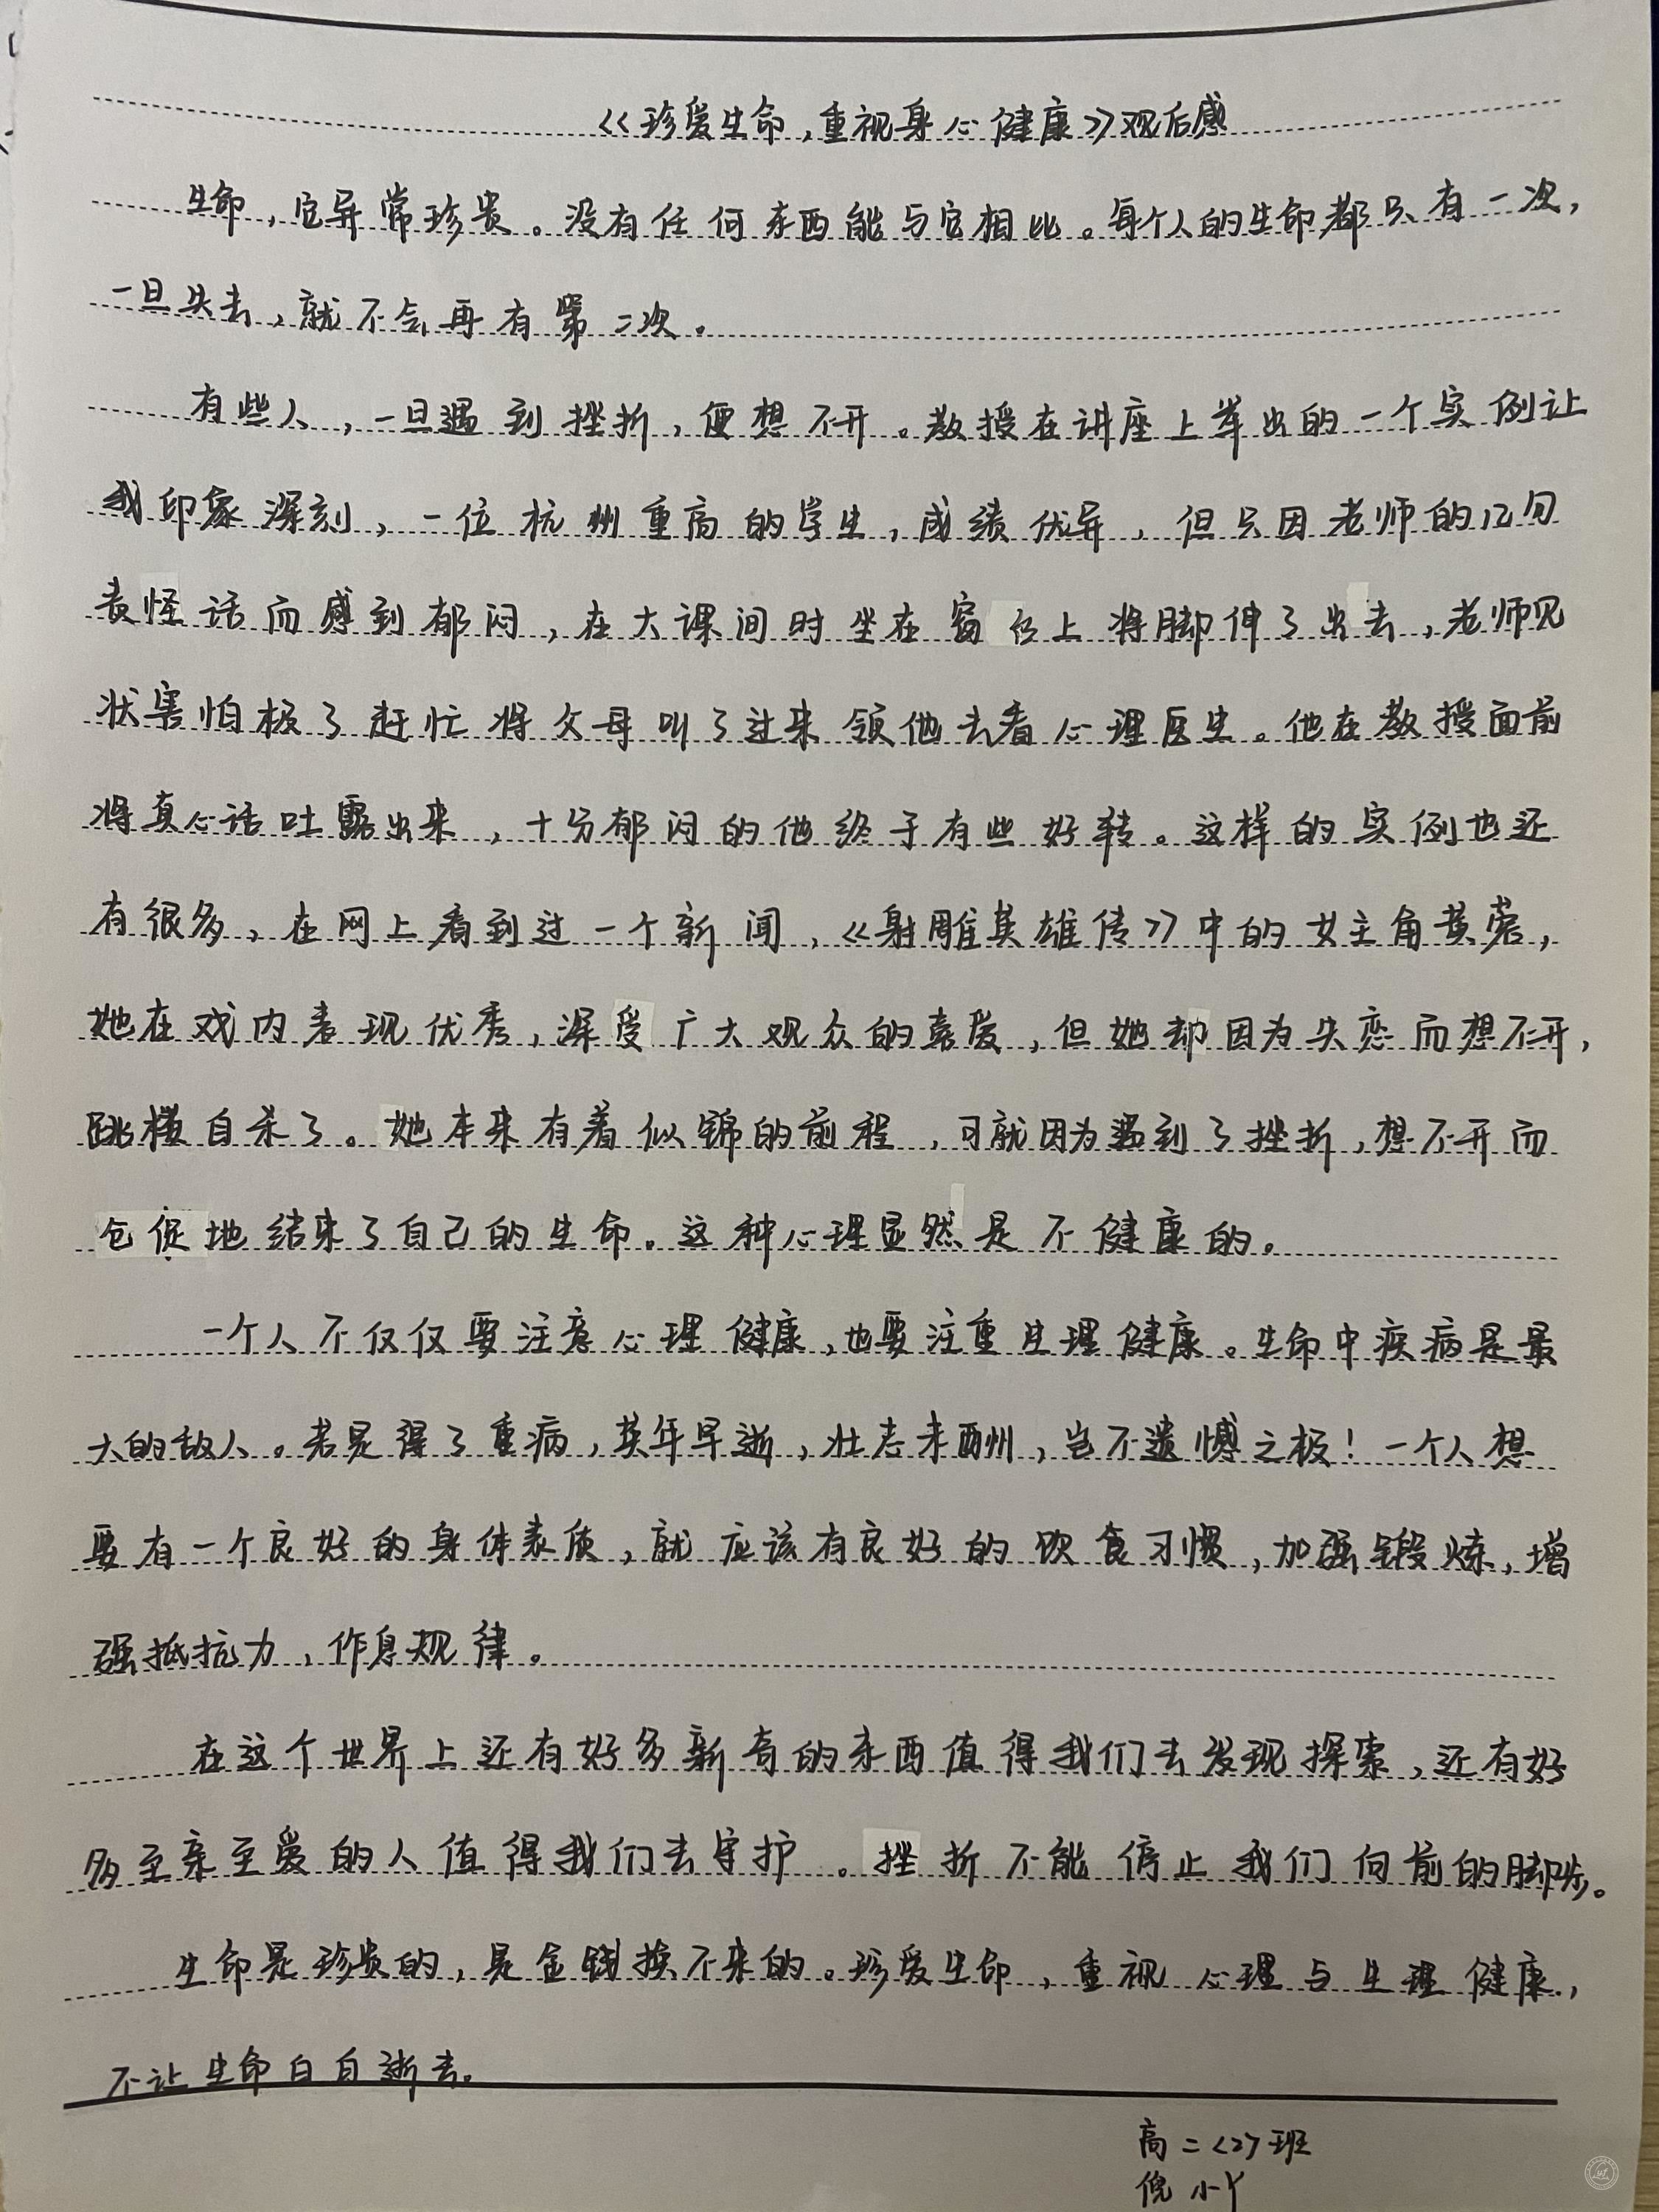 《珍爱生命,重视身心健康》观后感
生命，它异常珍贵。没有任何东西能与它相比。每个人的生命都只有一次，
一旦失去，就不会再有第二次。
有些人，一旦遇到挫折，便想不开。教授在讲座上举出的一个实例让
我印象深刻，一位杭州重高的学生，成绩优异，但只因老师的几句
责怪话而感到郁闷，在大课间时坐在窗台上将脚伸了出去，老师见
状害怕极了赶忙将父母叫了过来领他去看心理医生。他在教授面前
将真心话吐露出来，十分郁闷的他终于有些好转。这样的实例也还
有很多，在网上看到过一个新闻，《射雕英雄传》中的女主角黄蓉，
她在戏内表现优秀，深受广大观众的喜爱，但她却因为失恋而想不开，
跳楼自杀了。她本来有着似锦的前程，可就因为遇到了挫折，想不开而
仓促地结束了自己的生命。这种心理显然是不健康的。
一个人不仅仅要注意心理健康，也要注重生理健康。生命中疾病是最
大的敌人。若是得了重病，英年早逝，壮志未酬，岂不遗憾之极！一个人想
要有一个良好的身体素质，就应该有良好的饮食习惯，加强锻炼，增
强抵抗力，作息规律。
在这个世界上还有好多新奇的东西值得我们去发现探索，还有好
多至亲至爱的人值得我们去守护。挫折不能停止我们向前的脚步。
生命是珍贵的，是金钱换不来的。珍爱生命，重视心理与生理健康，
不让生命白白逝去。
高二<2>班
倪小丫